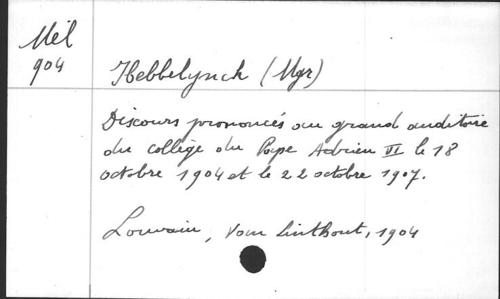 Mél
904
Hebbelynck (Mgr)
Discours prononcés au grand auditoire
du collège du Pape Adrien VI le 18
octobre 1904 et le 22 octobre 1907.
Louvain, Van Linthout, 1904